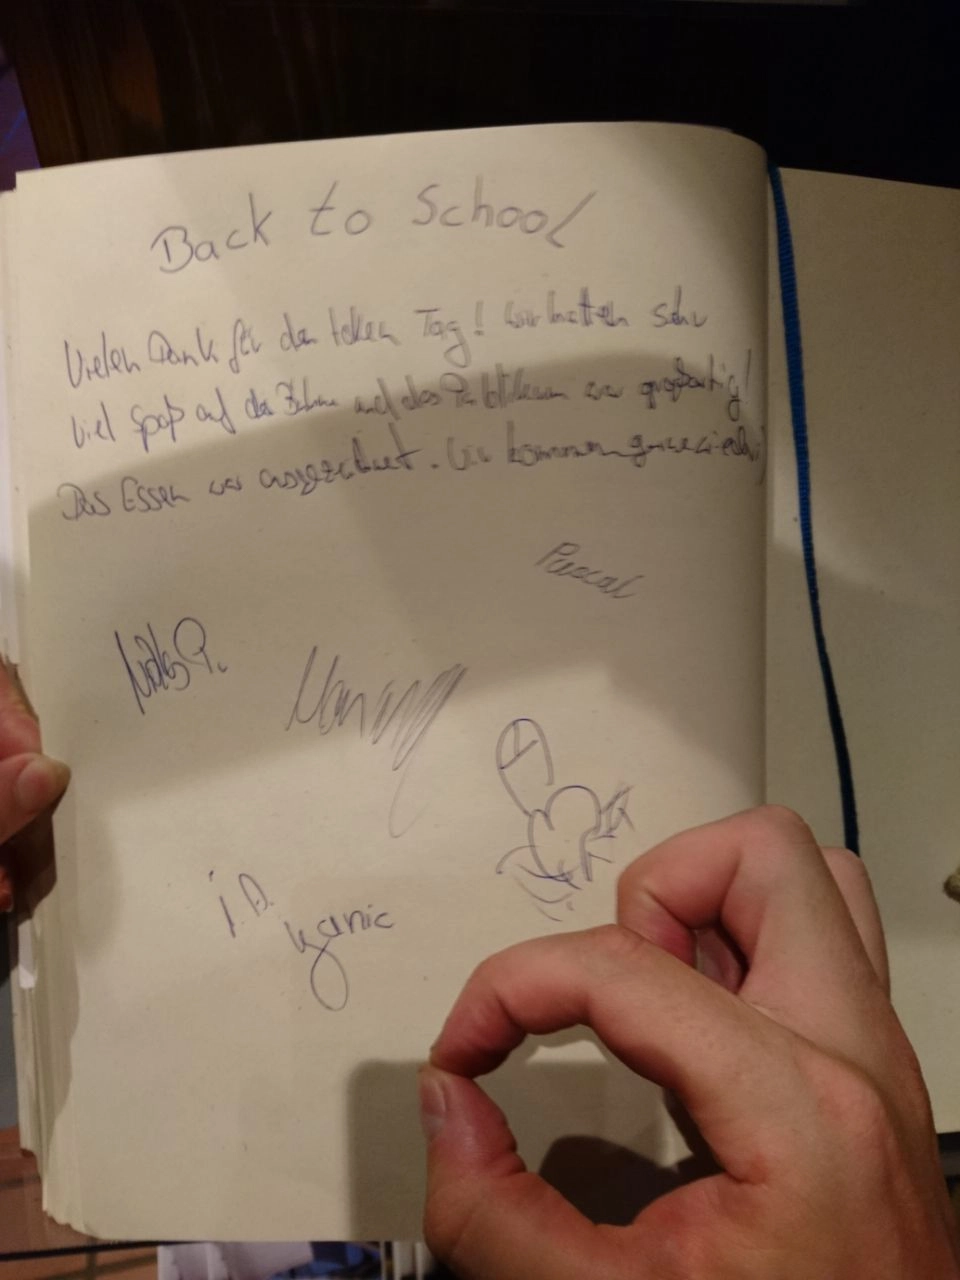 Back to School
Vielen Dank für den tollen Tag! Wir hatten sehr
viel Spaß auf der Bühne und das Publikum war großartig!
Das Essen war ausgezeichnet. Wir kommen gerne wieder :)
Pascal
i.A.
Yanic